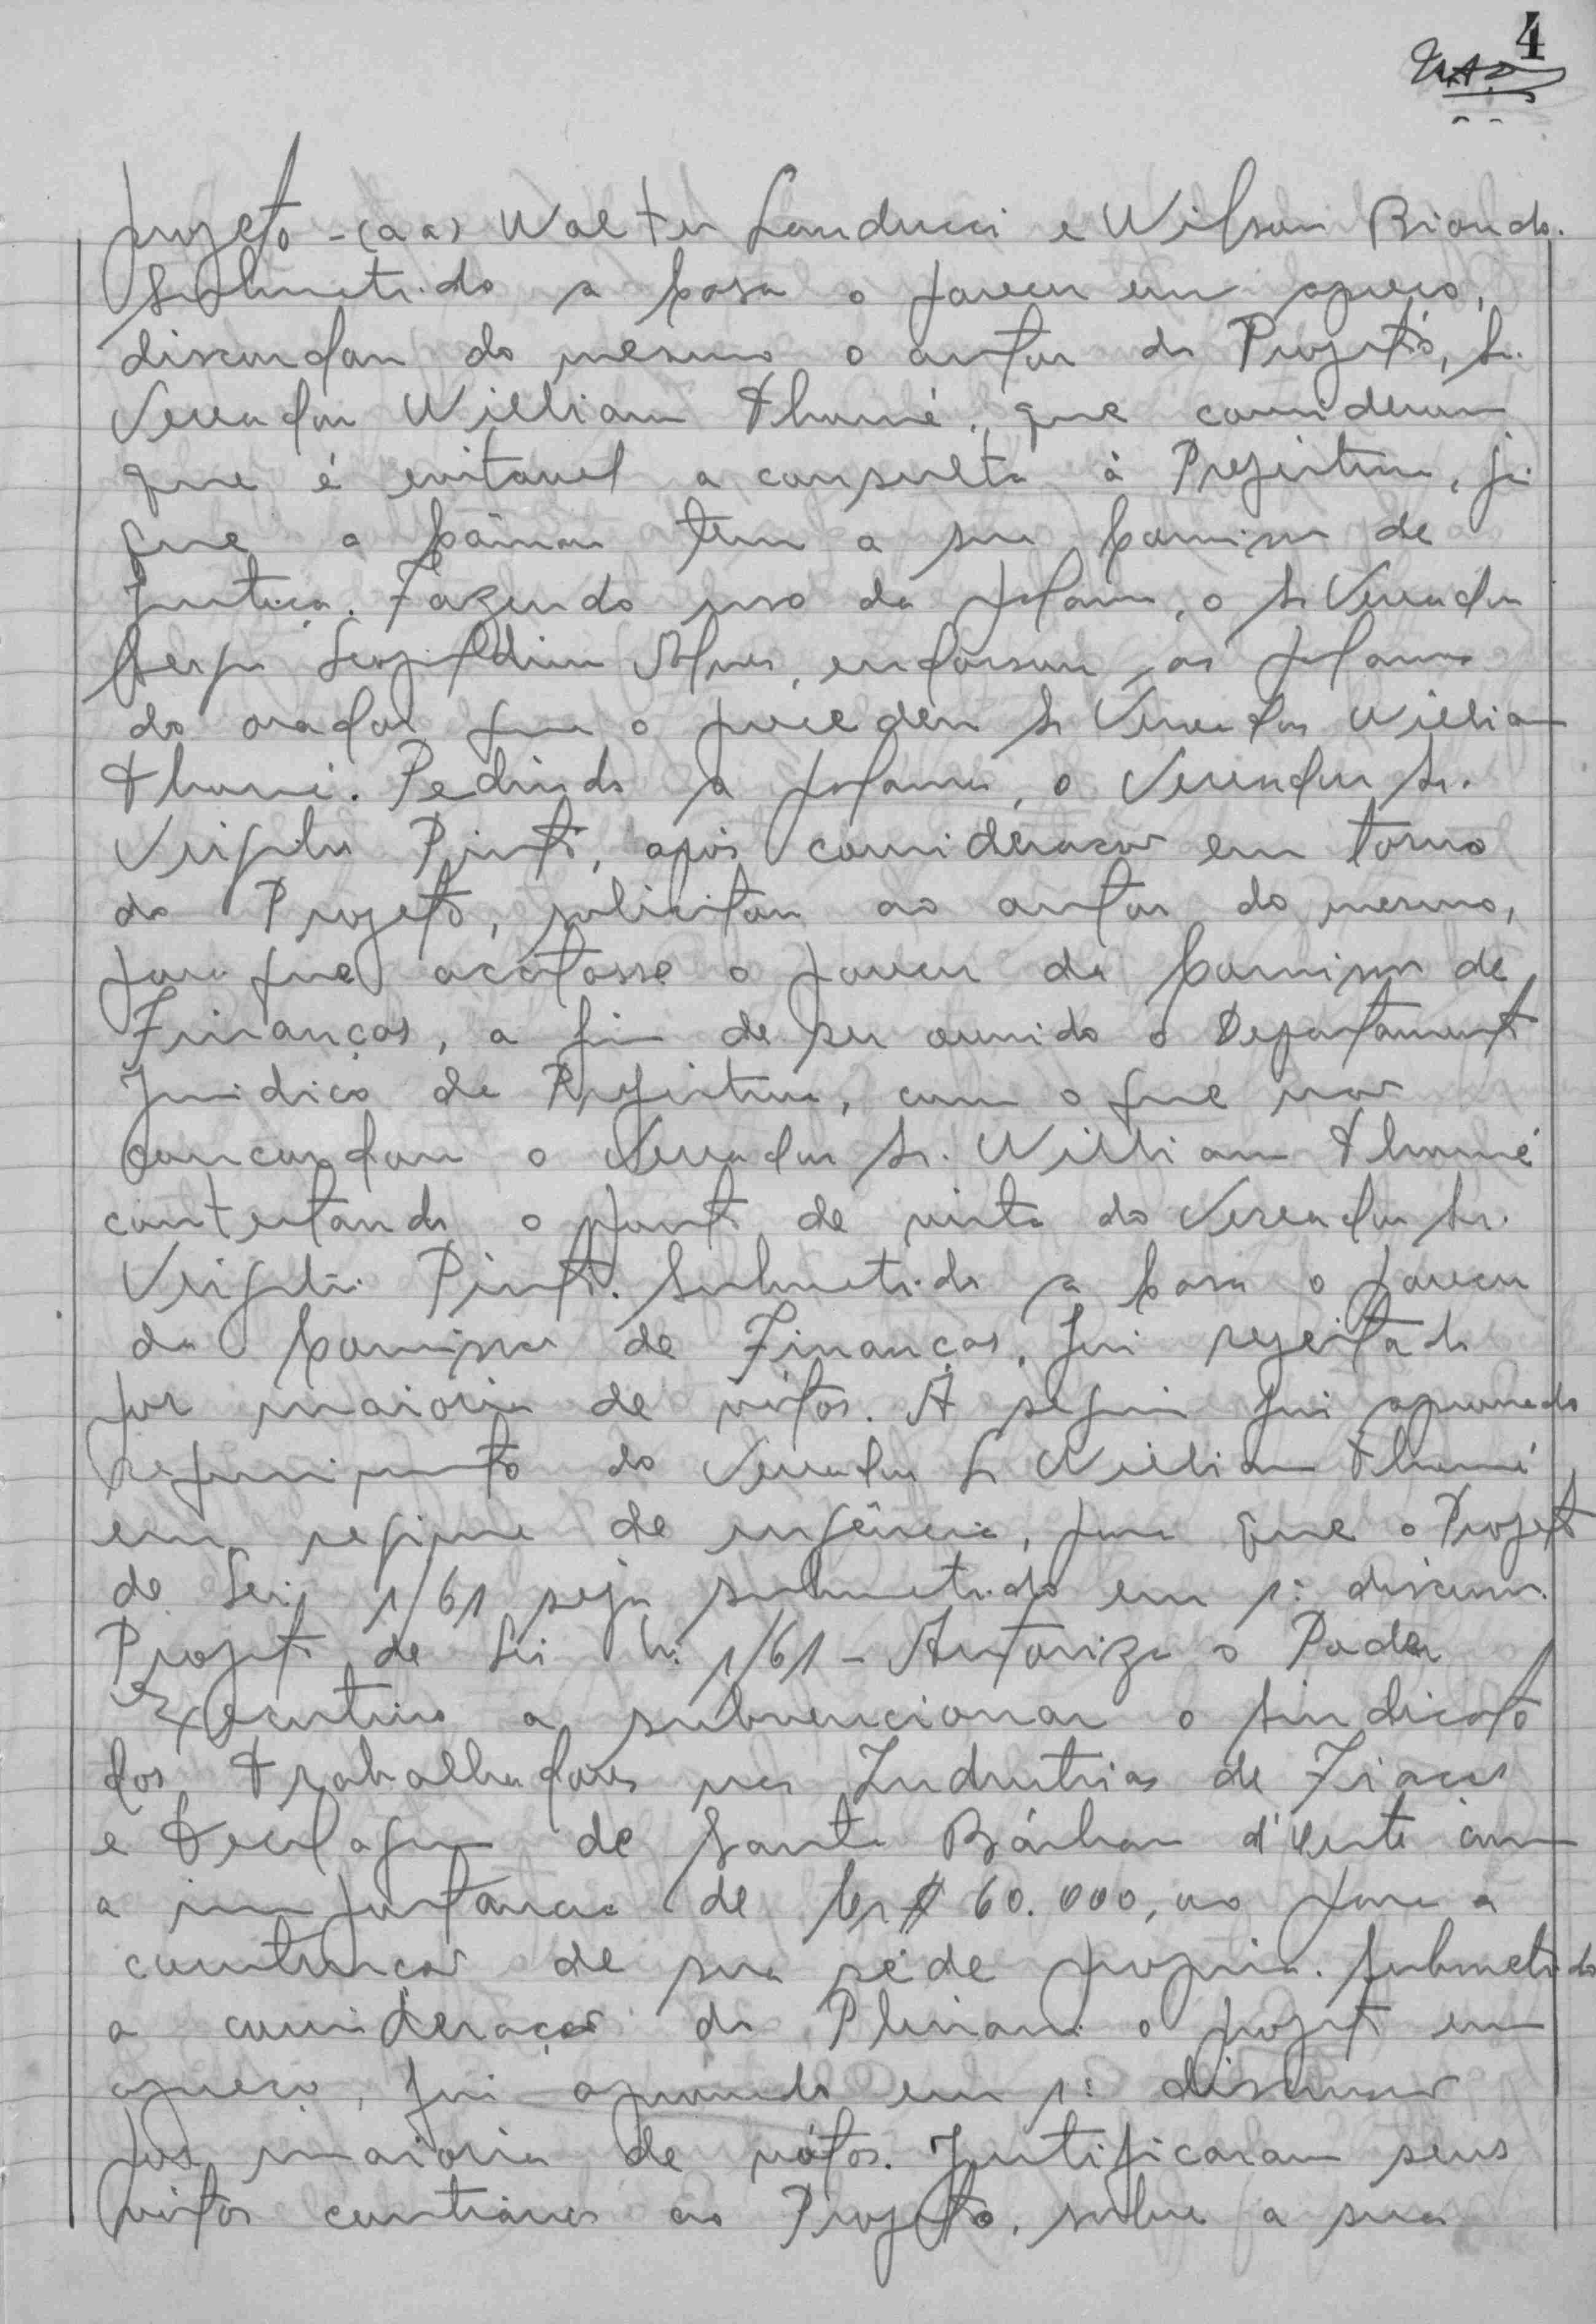 4
projeto - (aa) Walter Landucci e Wilson Biondo.
Submetido a Casa o parecer em apreço,
discordou do mesmo o autor do Projeto, Sr.
Vereador William Thomé, que considerou
que é evitavel a consulta à Prefeitura, já
que a Câmara tem a sua Comissão de
Justiça. Fazendo uso da palavra, o Sr Vereador
Leopoldino Alves, endossou as palavras
do orador que o precedeu Sr Vereador William
Thomé. Pedindo a palavra, o Vereador Sr.
Virgilio Pinto, após considerações em torno
do Projeto, solicitou ao autor do mesmo,
para que acatasse o parecer da Comissão de
Finanças, a fim de ser ouvido o Departamento
Juridico da Prefeitura, com o que não
concordou o Vereador Sr. William Thomé
contestando o ponto de vista do Vereador Sr.
Virgilio Pinto. Submetido a Casa o parecer
da Comissão de Finanças, foi rejeitado
por maioria de votos. A seguir foi aprovado
requerimento do Vereador Sr William Thomé
em regime de urgência, para que o Projeto
de Lei 1/61 seja submetido em 1ª discussão.
Projeto de Lei Nº 1/61 - Autoriza o Poder
Executivo a subvencionar o Sindicato
dos Trabalhadores nas Industrias de Fiação
e Tecelagem de Santa Bárbara d'Oeste com
a importancia de Cr$ 60.000,00 para a
construção de sua séde propria. Submetido
a consideração do Plenario o projeto em
apreço, foi aprovado em 1ª discussão
por maioria de votos. Justificaram seus
votos contrários ao Projeto, sobre a sua